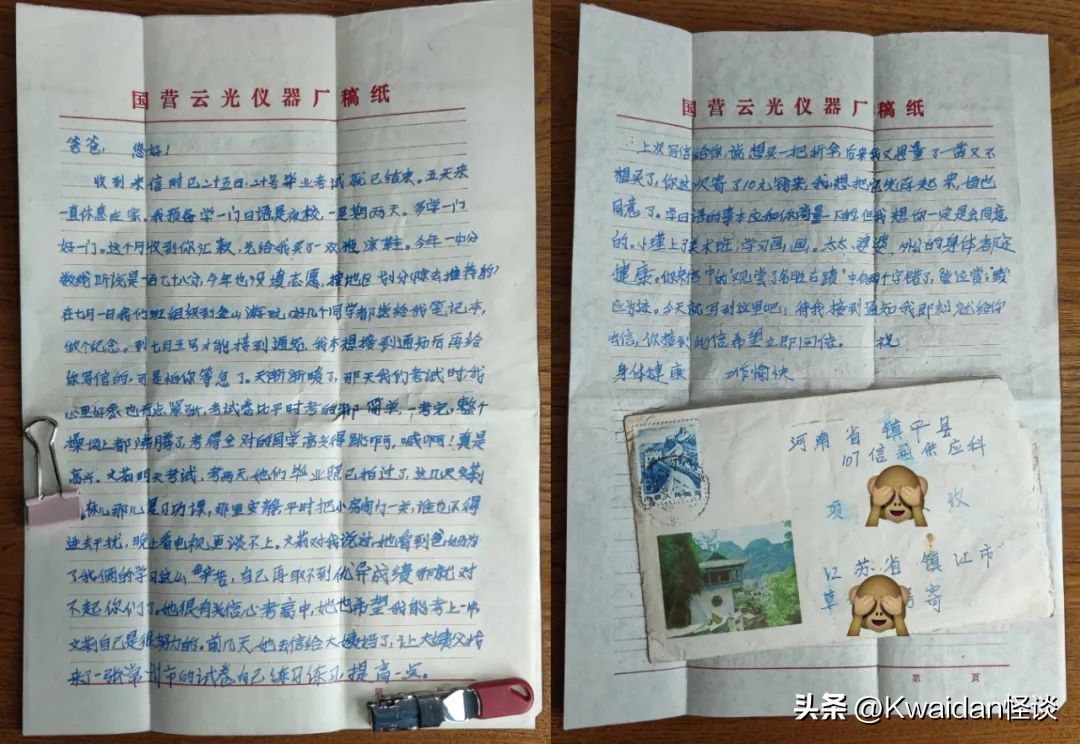 国营云光仪器厂稿纸
爸爸,您好!
收到来信时已二十五日,二十号毕业考试就已结束。五天来
一直休息在家。我预备学一门日语是夜校,一星期两天。多学一门
好一门。这个月收到你汇款,先给我买了一双凉鞋。今年一中分
数线听说是一百七十八分,今年也没填志愿,按地区划分(除去推荐的)
在七月一日我们班组织到金山游玩,好几个同学都送给我笔记本,
做个纪念。到七月五号才能接到通知,我本想接到通知后再给
你写信的,可是怕你等急了。天渐渐暖了,那天我们考试时我
心里好象也有点紧张,考试卷比平时考的都简单,一考完,整个
操场上都沸腾了,考得全对的同学高兴得跳啊,喊啊!真是
高兴。文莉明天考试,考两天,她们毕业照已拍过了,这几天文莉
那儿复习功课,那里安静,平时把小房间门一关,谁也不得
进去干扰,晚上看电视更谈不上。文莉对我说过她看到爸妈为
了我俩的学习这么辛苦,自己再取不到优异成绩那就对
不起你们了,她很有信心考高中,她也希望我能考上一中
文莉自己是很努力的。前几天,她去信给大姨妈了,让大姨父找
来了一张常州市的试卷自己练习练习,提高一点。
第
国营云光仪器厂稿纸
上次写信给你,说想买一把折伞后来我又思量了一番又不
想买了,你这次寄了10元钱来,我想把它先存起来,妈也
同意了。学日语的事本应和你商量一下的但我想你一定是会同意
的。小瑾上了美术班,学习画画。太太、婆婆、外公的身体都还
健康。你来信中的“观尝了名胜古蹟”中有两个字错了,尝应赏,蹟
应为迹。今天就写到这里吧!待我接到通知我即刻就给你
去信,你接到此信希望立即回信。 祝
身体健康 工作愉快
河南省镇平县
107信箱供应科
项 收
江苏省镇江市
草 寄
第 页
头条 @Kwaidan怪谈